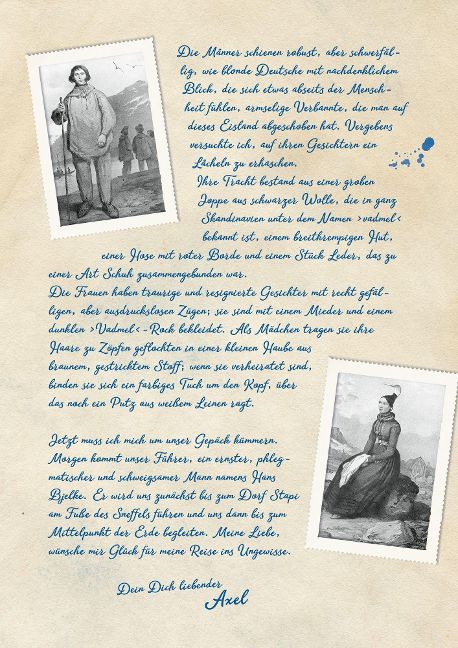 Die Männer schienen robust, aber schwerfäl-
lig, wie blonde Deutsche mit nachdenklichem
Blick, die sich etwas abseits der Mensch-
heit fühlen, armselige Verbannte, die man auf
dieses Eisland abgeschoben hat. Vergebens
versuchte ich, auf ihren Gesichtern ein
Lächeln zu erhaschen.
Ihre Tracht bestand aus einer groben
Joppe aus schwarzer Wolle, die in ganz
Skandinavien unter dem Namen ›vadmel‹
bekannt ist, einem breitkrempigen Hut,
einer Hose mit roter Borde und einem Stück Leder, das zu
einer Art Schuh zusammengebunden war.
Die Frauen haben traurige und resignierte Gesichter mit recht gefäl-
ligen, aber ausdruckslosen Zügen; sie sind mit einem Mieder und einem
dunklen ›Vadmel‹-Rock bekleidet. Als Mädchen tragen sie ihre
Haare zu Zöpfen geflochten in einer kleinen Haube aus
braunem, gestricktem Stoff; wenn sie verheiratet sind,
binden sie sich ein farbiges Tuch um den Kopf, über
das noch ein Putz aus weißem Leinen ragt.
Jetzt muss ich mich um unser Gepäck kümmern.
Morgen kommt unser Führer, ein ernster, phleg-
matischer und schweigsamer Mann namens Hans
Bjelke. Er wird uns zunächst bis zum Dorf Stapi
am Fuße des Sneffels führen und uns dann bis zum
Mittelpunkt der Erde begleiten. Meine Liebe,
wünsche mir Glück für meine Reise ins Ungewisse.
Dein Dich liebender
Axel